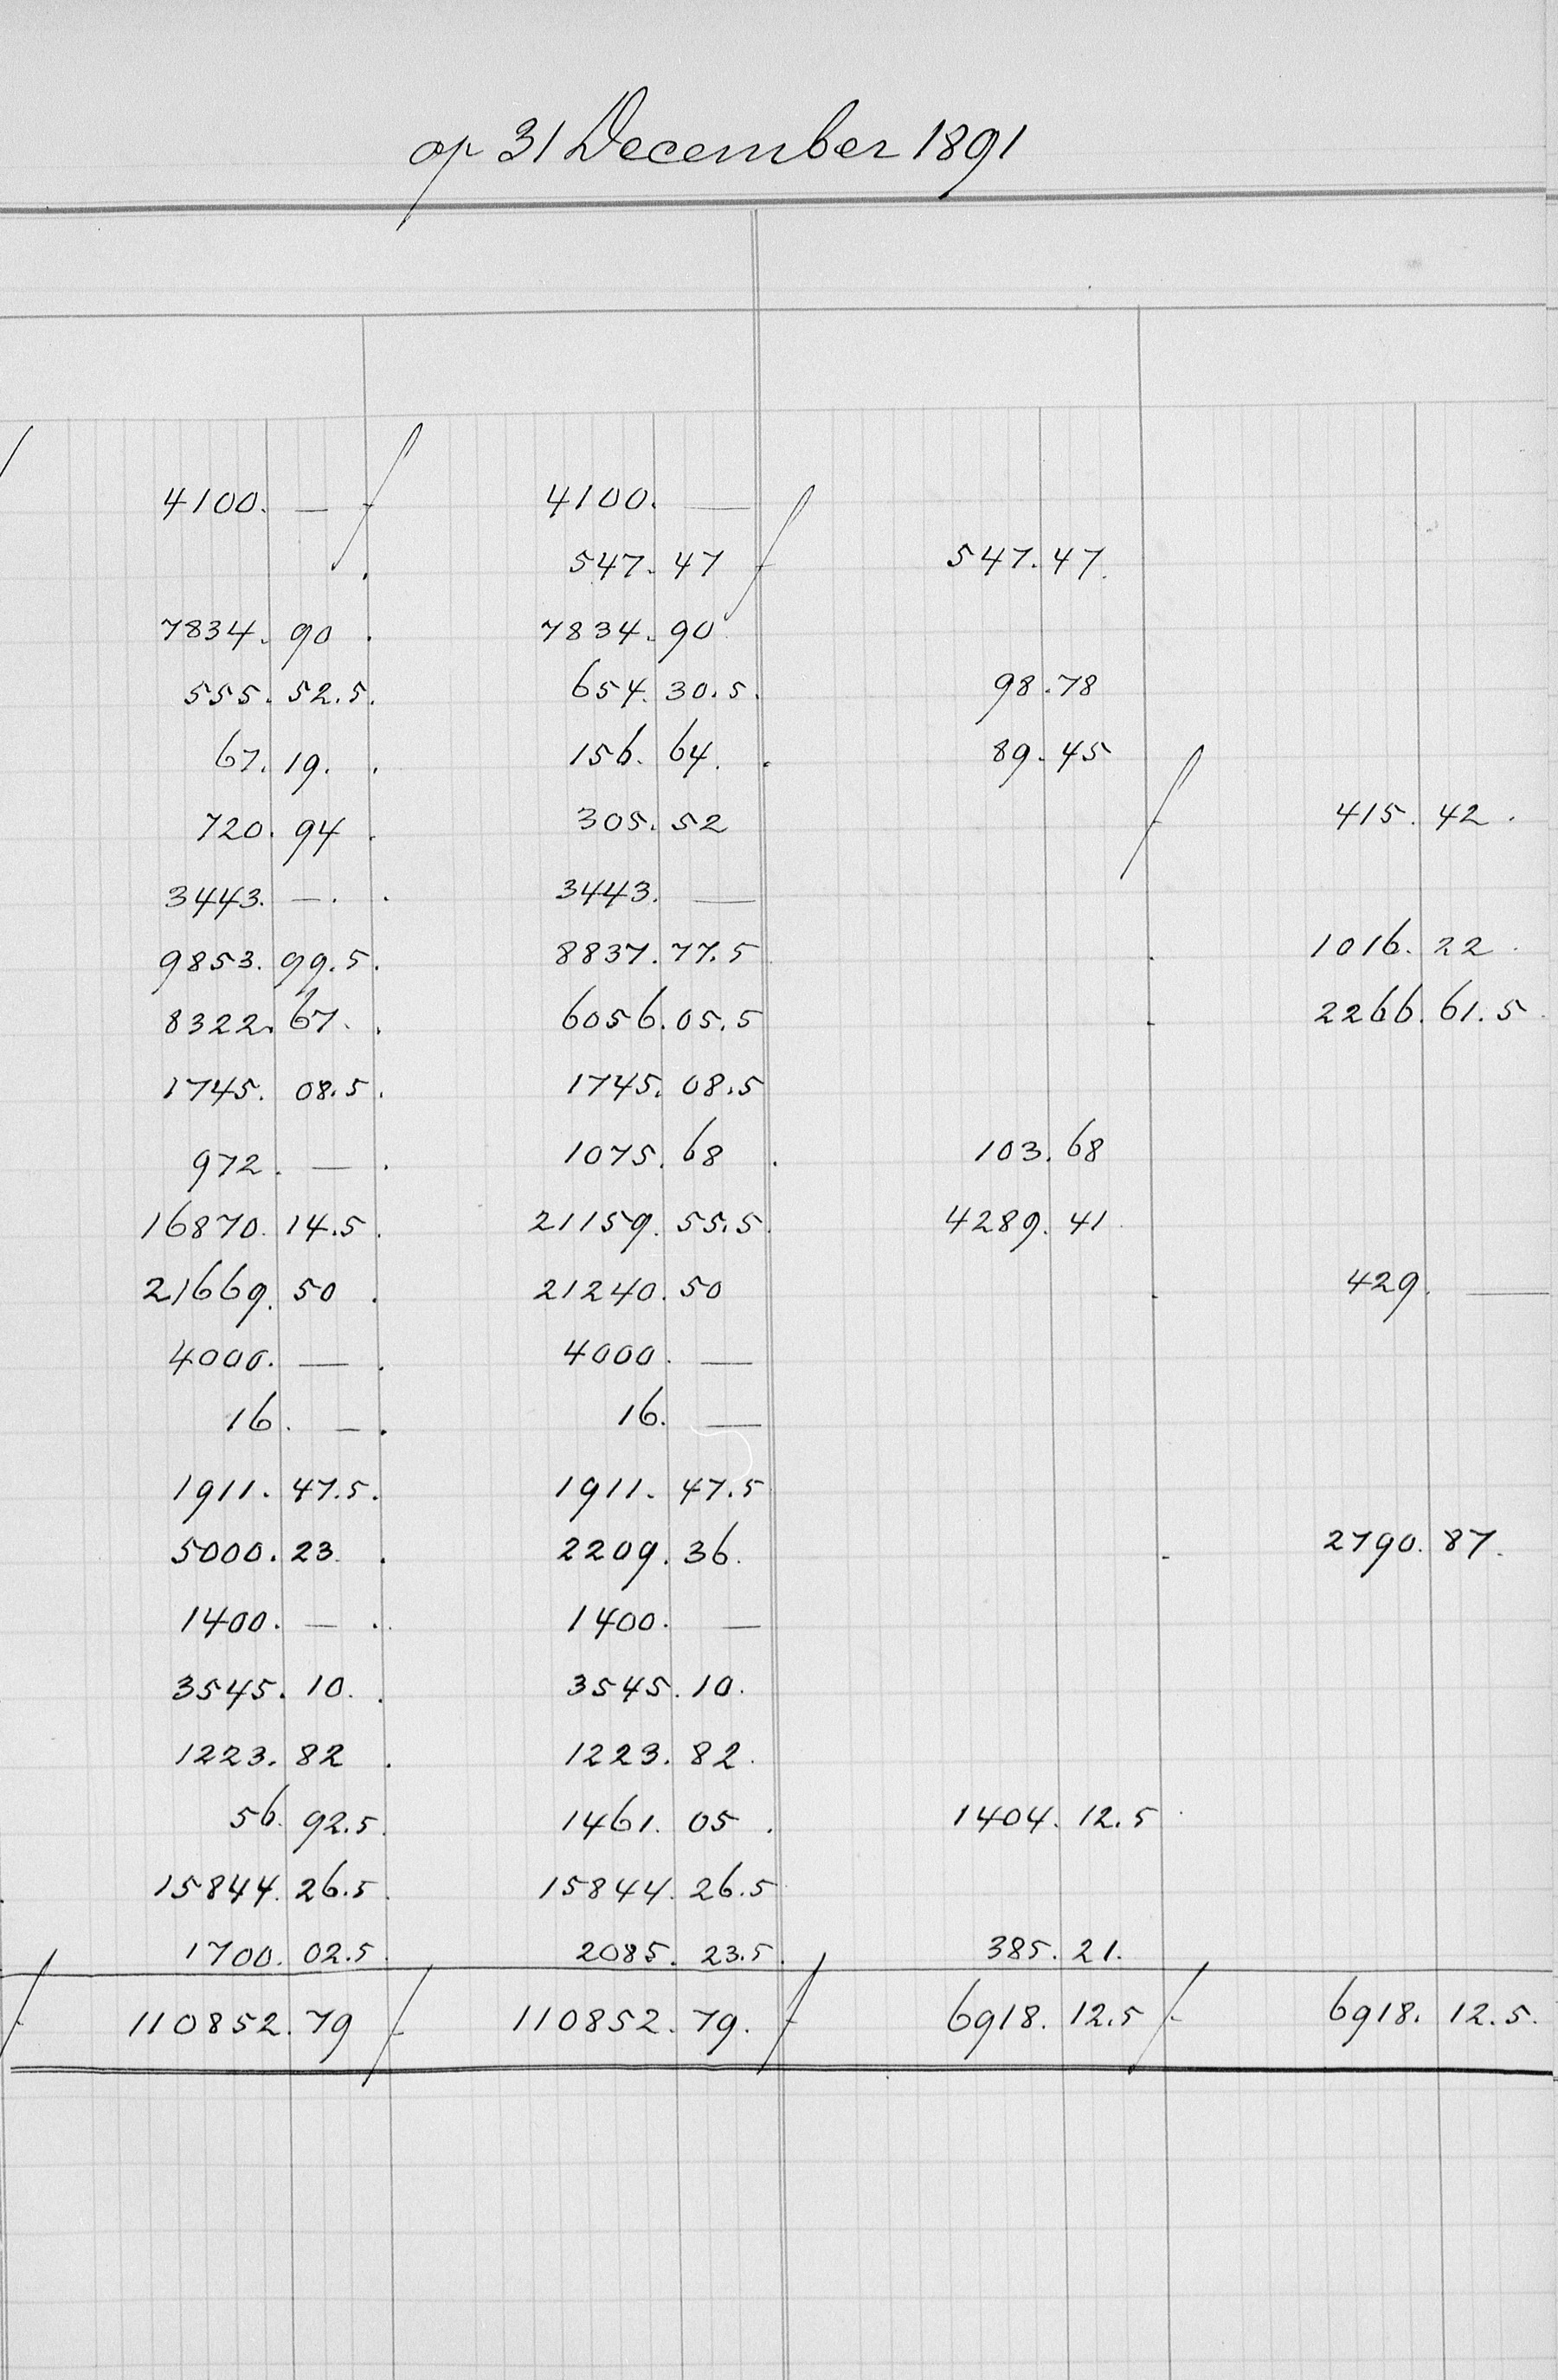 op 31 December 1891
4100. — f 4100. —
547. 47 f 547. 47.
7834. 90 . 7834. 90
555. 52.5. 654. 30.5. 98. 78
67. 19. . 156. 64. . 89. 45
720. 94 . 305. 52 f 415. 42.
3443. —. . 3443. —
9853. 99.5. 8837. 77.5 . 1016. 22.
8322. 67. . 6056. 05.5 . 2266. 61.5.
1745. 08.5. 1745. 08.5
972. — . 1075. 68 . 103. 68
16870. 14.5. 21159. 55.5. 4289. 41.
21669. 50 . 21240. 50 . 429. —
4000. — . 4000. —
16. — . 16. —
1911. 47.5. 1911. 47.5
5000. 23. . 2209. 36. . 2790. 87.
1400. — . 1400. —
3545. 10. . 3545. 10.
1223. 82 . 1223. 82.
56. 92.5. 1461. 05 . 1404. 12.5
15844. 26.5. 15844. 26.5
1700. 02.5. 2085. 23.5. 385. 21.
f 110852. 79 f 110852. 79. f 6918. 12.5 f 6918. 12.5.